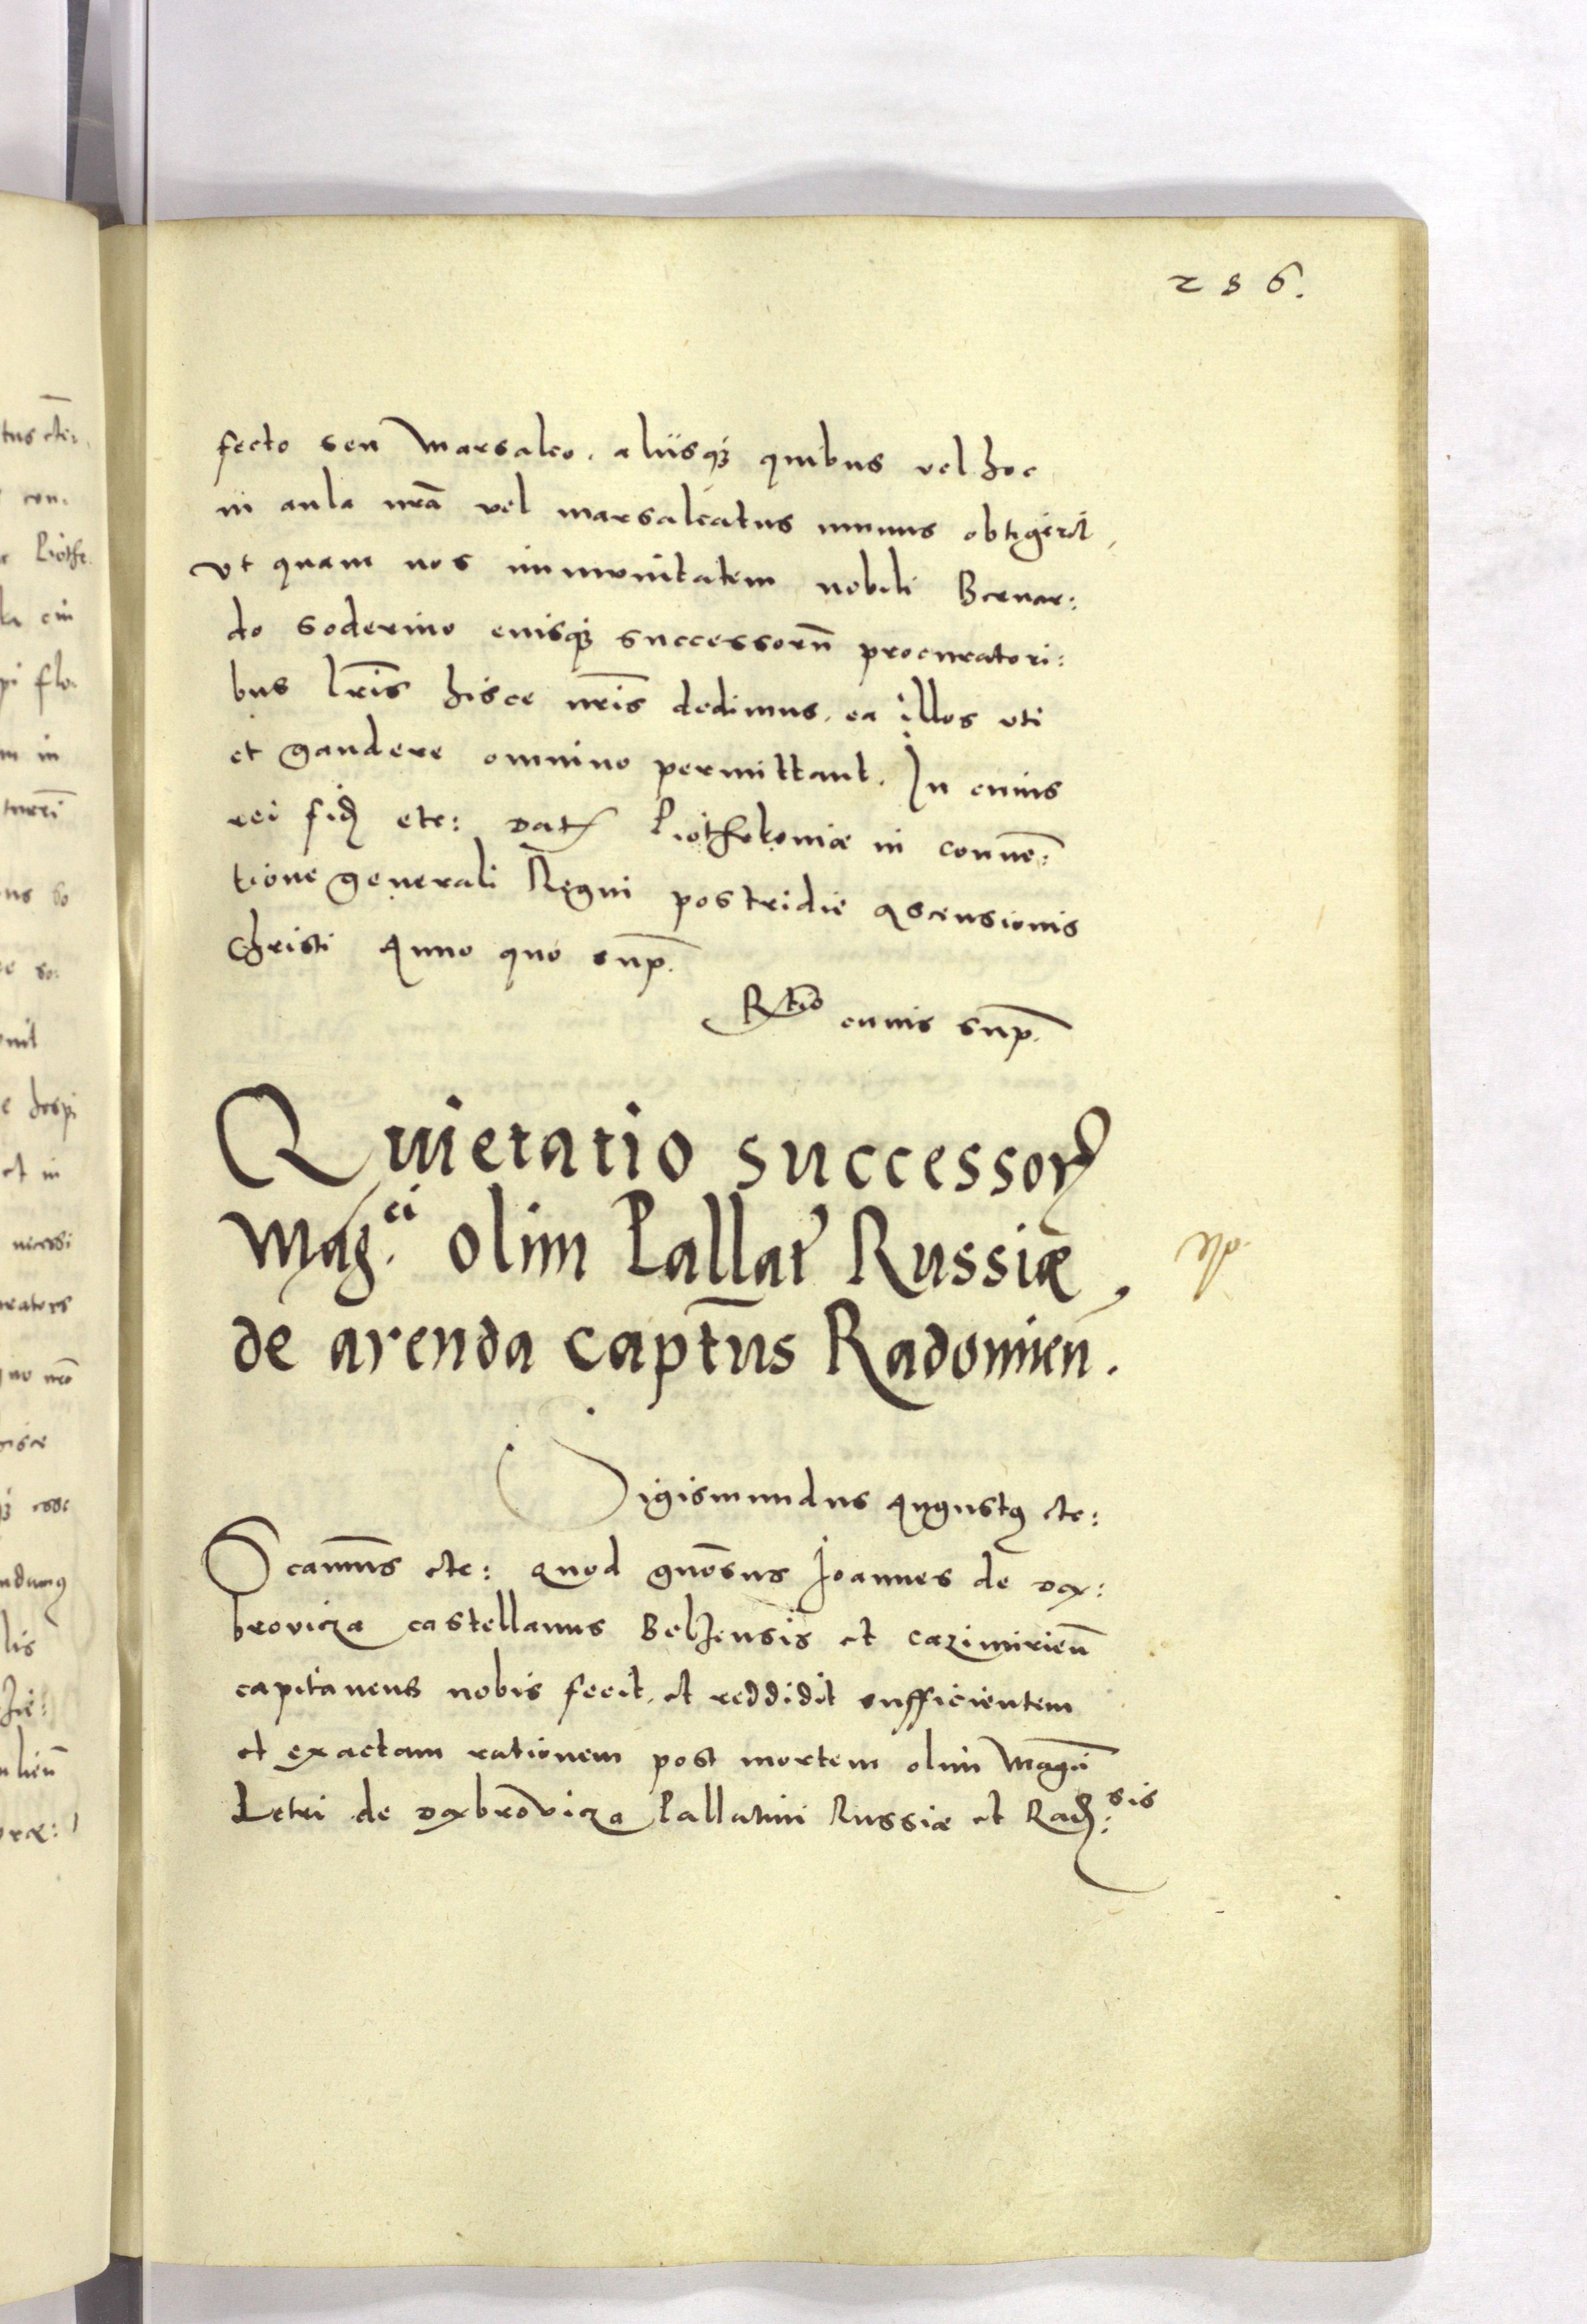 286.
fecto seu Marsalco. aliisq3 quibus vel hoc
in aula nrã vel marsalcatus munus obtigerit,
vt quam nos immunitatem nobili Bernar:
do Soderino eiusq3 successorũ procuratori:
bus lr̃is hisce nr̃is dedimus. ea illos uti
et gaudere omnino permittant. In cuius
rei fid etc: Dat Piothrkoviæ in conuẽ:
tione generali Regni postridie Ascensionis
Christi Anno quo sup.
Rtio cuius sup.
Quietatio successor
Mag.ci olim Pallat Russiæ,
de arenda captñus Radomieñ.
Sigismundus Augustꝰ etc:
Scamũs etc: Quod gnõsus Joannes de Dą:
browicza castellanus Belzensis et cazimirieñ
capitaneus nobis fecit. et reddidit sufficientem
et exactam rationem post mortem olim Magci
Petri de Dąbrowicza Pallatini Russiæ et Rad:sis